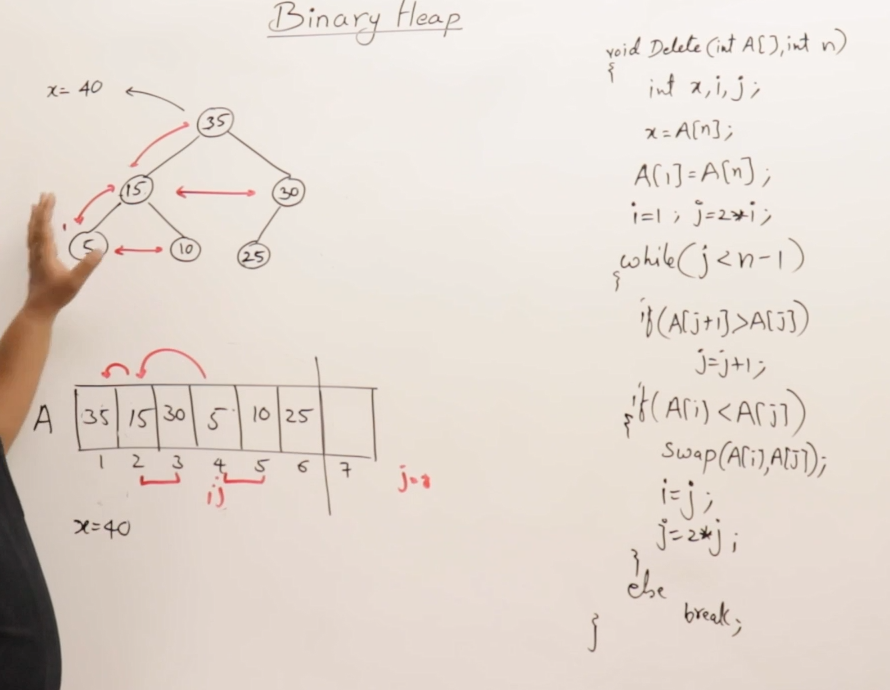 Binary Heap
x= 40
35
15
30
5
10
25
A
35 15 30 5 10 25
1 2 3 4 5 6 7
i j
x=40
void Delete(int A[],int n)
{
int x,i,j;
x=A[n];
A[1]=A[n];
i=1; j=2*i;
while(j<n-1)
{
if(A[j+1]>A[j])
j=j+1;
if(A[i]<A[j])
{
Swap(A[i],A[j]);
i=j;
j=2*j;
}
else
break;
}